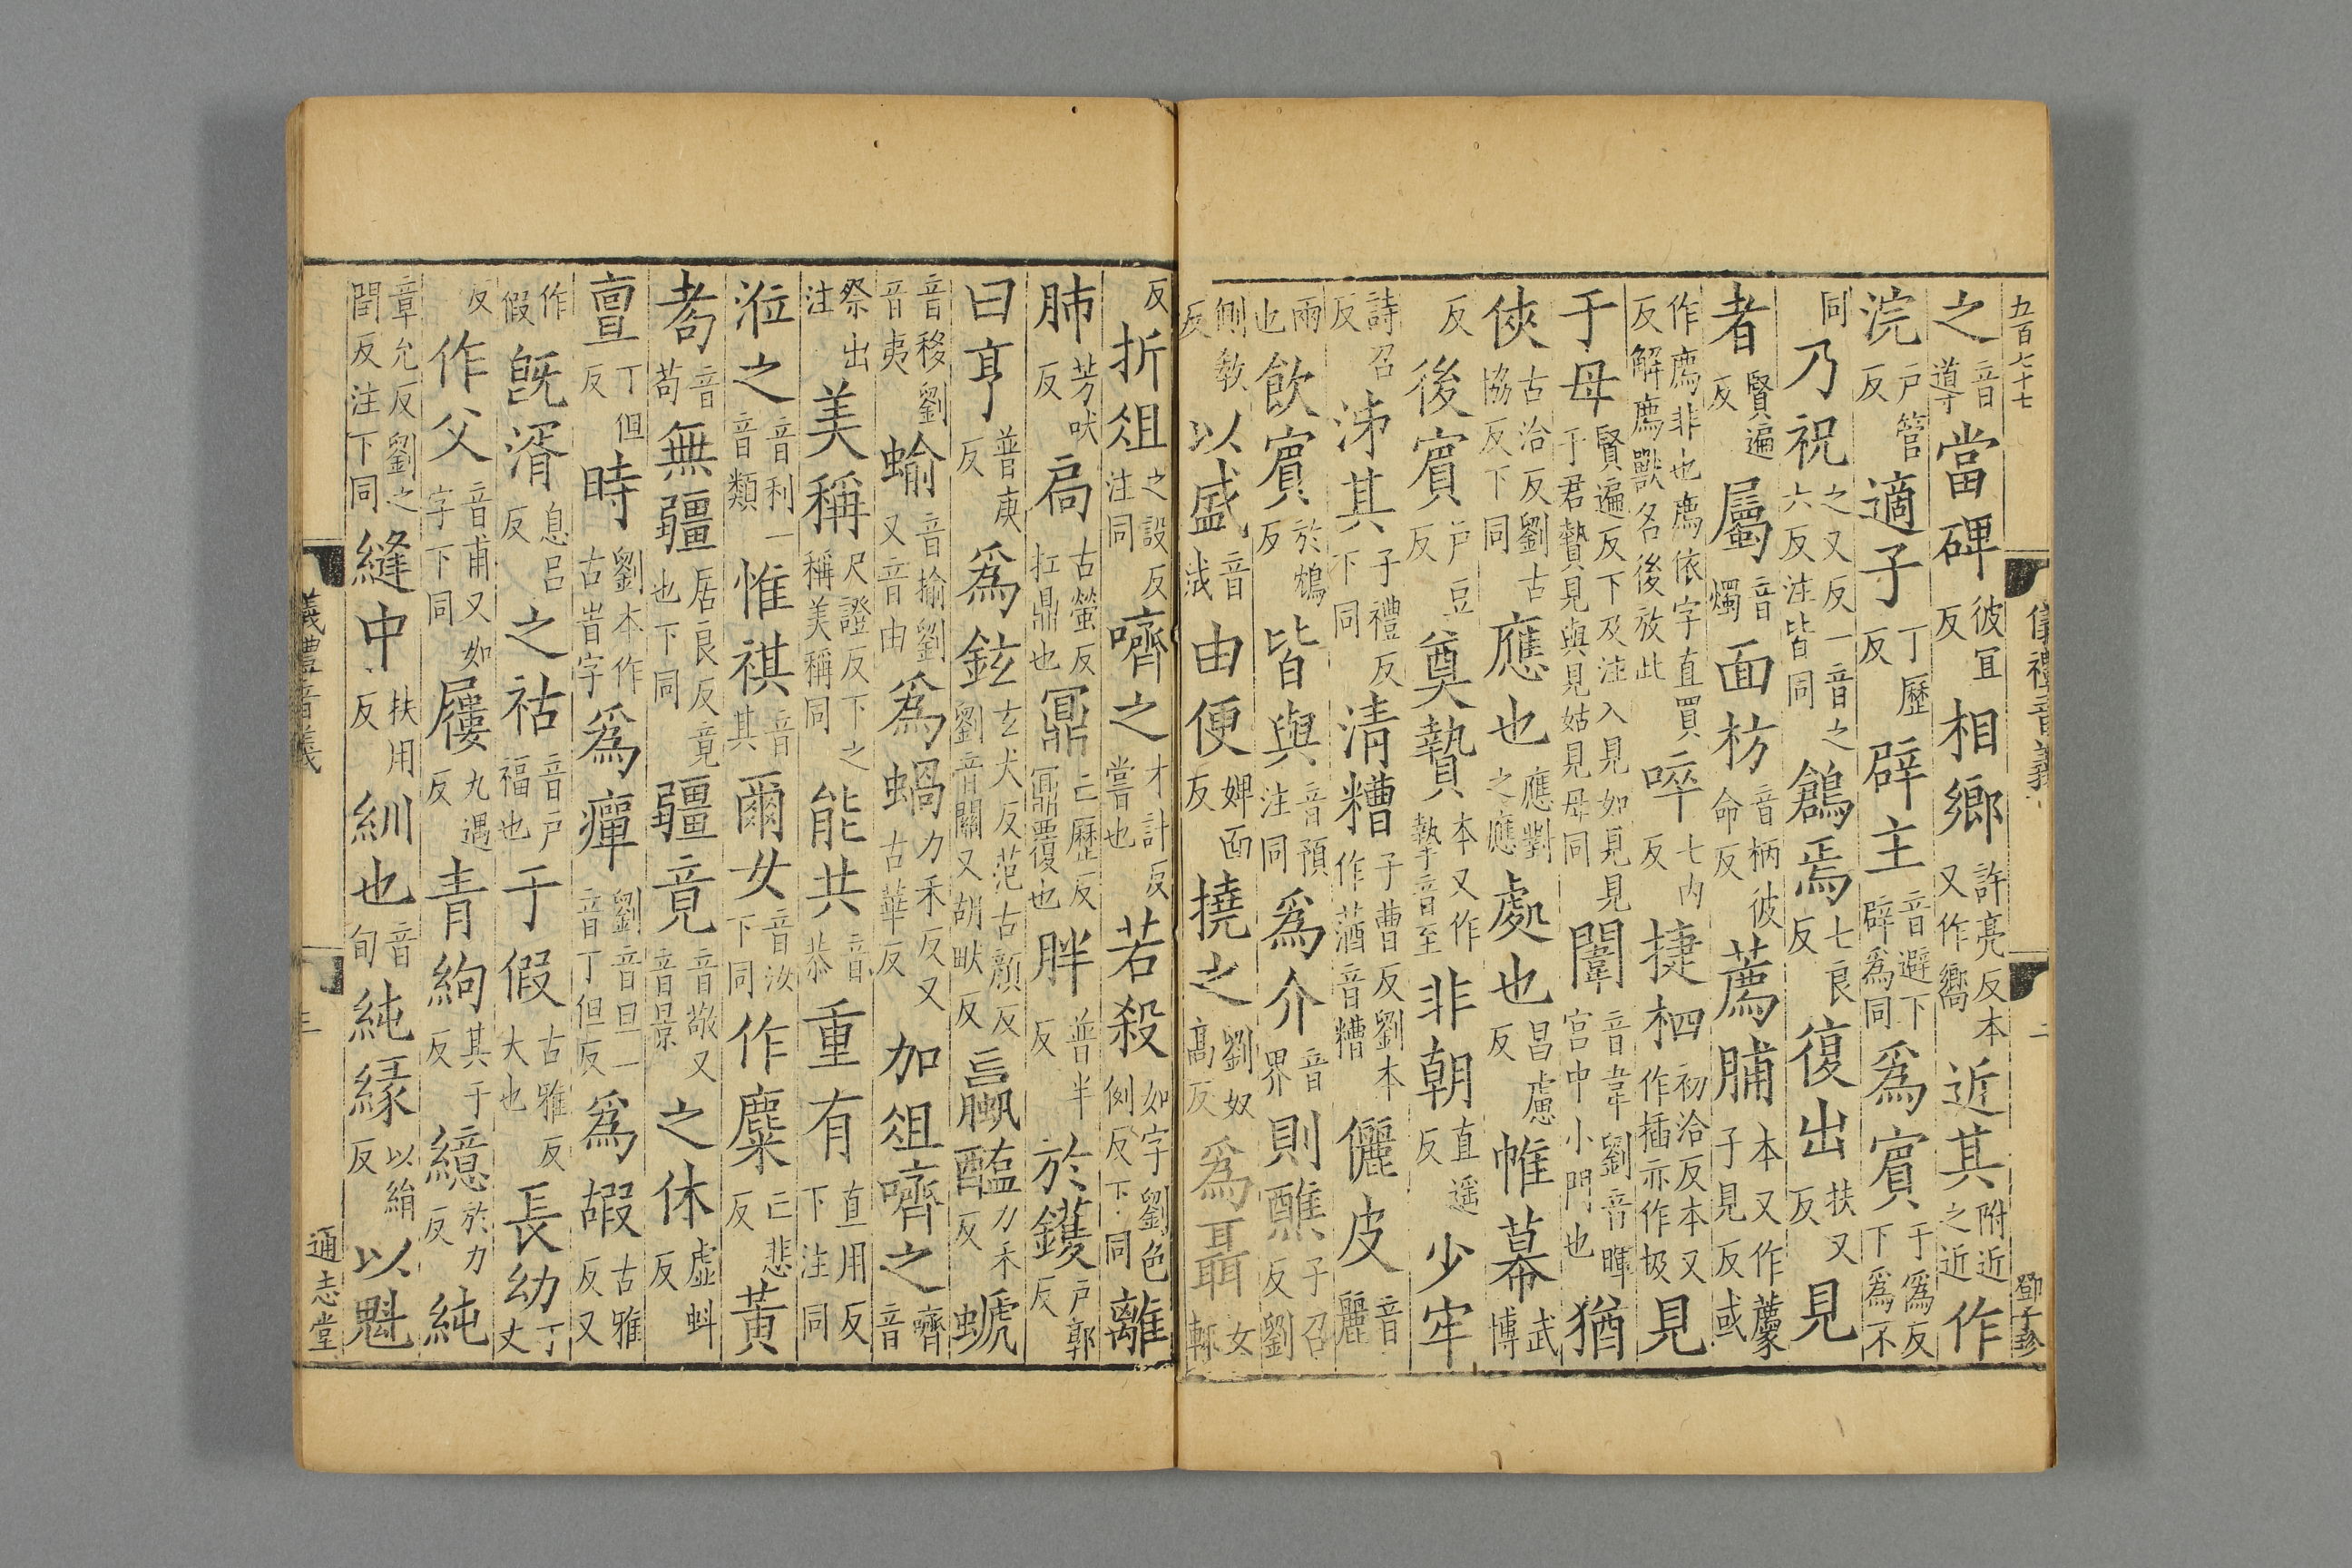 五百七十七 儀禮音義 二 鄧子珍
之音導當碑彼宜反相鄉許亮反本又作嚮近其附近之近作
浣戶管反適子丁歷反辟主音避下辟爲同爲賓于僞反下爲不
同乃祝之又反一音之六反注皆同鶬焉七良反復出扶又反見
者賢遍反屬音燭面枋音柄彼命反薦脯本又作藨子見反或
作廌非也廌依字直買反解廌獸名後放此啐七内反捷柶初洽反本又作插亦作扱見
于母賢遍反下及注入見如見見于君贄見與見姑見母同闈音韋劉音暉宫中小門也猶
俠古洽反劉古協反下同應也應對之應處也昌慮反帷幕武博
反後賓戶豆反奠贄本又作摯音至非朝直遥反少牢
詩召反泲其子禮反下同清糟子曹反劉本作䣯音糟儷皮音麗
兩也飲賓於鴆反皆與音預注同爲介音界則醮子召反劉
側敎反以盛音成由便婢面反撓之劉奴高反爲聶女輒
反折俎之設反注同嚌之才計反嘗也若殺如字劉色例反下同離
肺芳吠反扃古螢反扛鼎也鼏亡歷反鼏覆也胖普半反於鑊戶郭反
曰亨普庚反爲鉉玄犬反范古顔反劉音關又胡畎反蠃醢力禾反螔
音移劉音夷蝓音揄劉又音由爲蝸力禾反又古華反加俎嚌之嚌音
祭出注美稱尺證反下之稱美稱同能共音恭重有直用反下注同
涖之音利一音類惟祺音其爾女音汝下同作麋亡悲反黃
耉音苟無疆居良反竟也下同疆竟音敬又音景之休虛虯反
亶丁但反時劉本作古旹字爲癉劉音旦一音丁但反爲嘏古雅反又
作假旣湑息吕反之祜音戶福也于假古雅反大也長幼丁丈
反作父音甫又如字下同屨九遇反青絇其于反繶於力反純
章允反劉之閏反注下同縫中扶用反紃也音旬純緣以絹反以魁
儀禮音義 三 通志堂